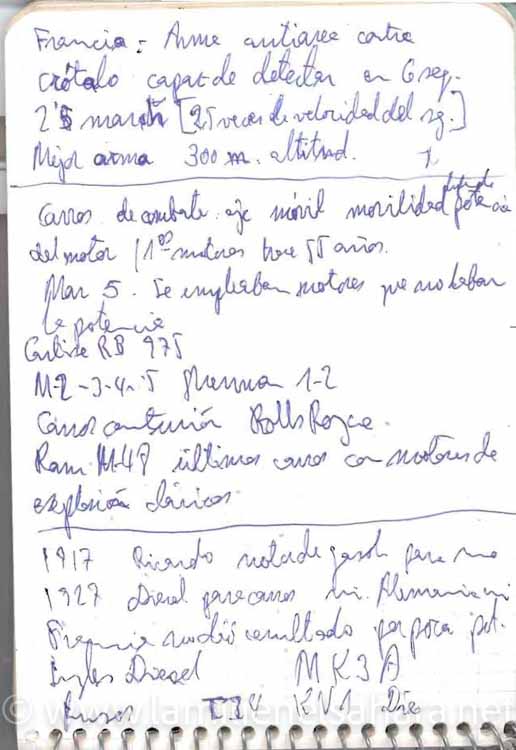 Francia = Arma antiarea contra
crótalo capaz de detectar en 6 seg.
2'5 march [25 veces de velocidad del sg.]
Mejor arma 300 m. altitud.
Carros de combate eje móvil movilidad potencia
del motor / 1os motores hace 55 años.
Mar 5. Se empleaban motores que no daban
la potencia
RB 975
M-2-3-4-5 1-2
Carros centurión Rolls Royce.
Ram M-48 últimos carros con motores de
explosión clásicos
1917 Ricardo motor de gasoli para
1927 Diesel para carros ni Alemania ni
Francia no dió resultado por poca pot.
Ingles Diesel MK3A
Rusos T34 KV1 Die